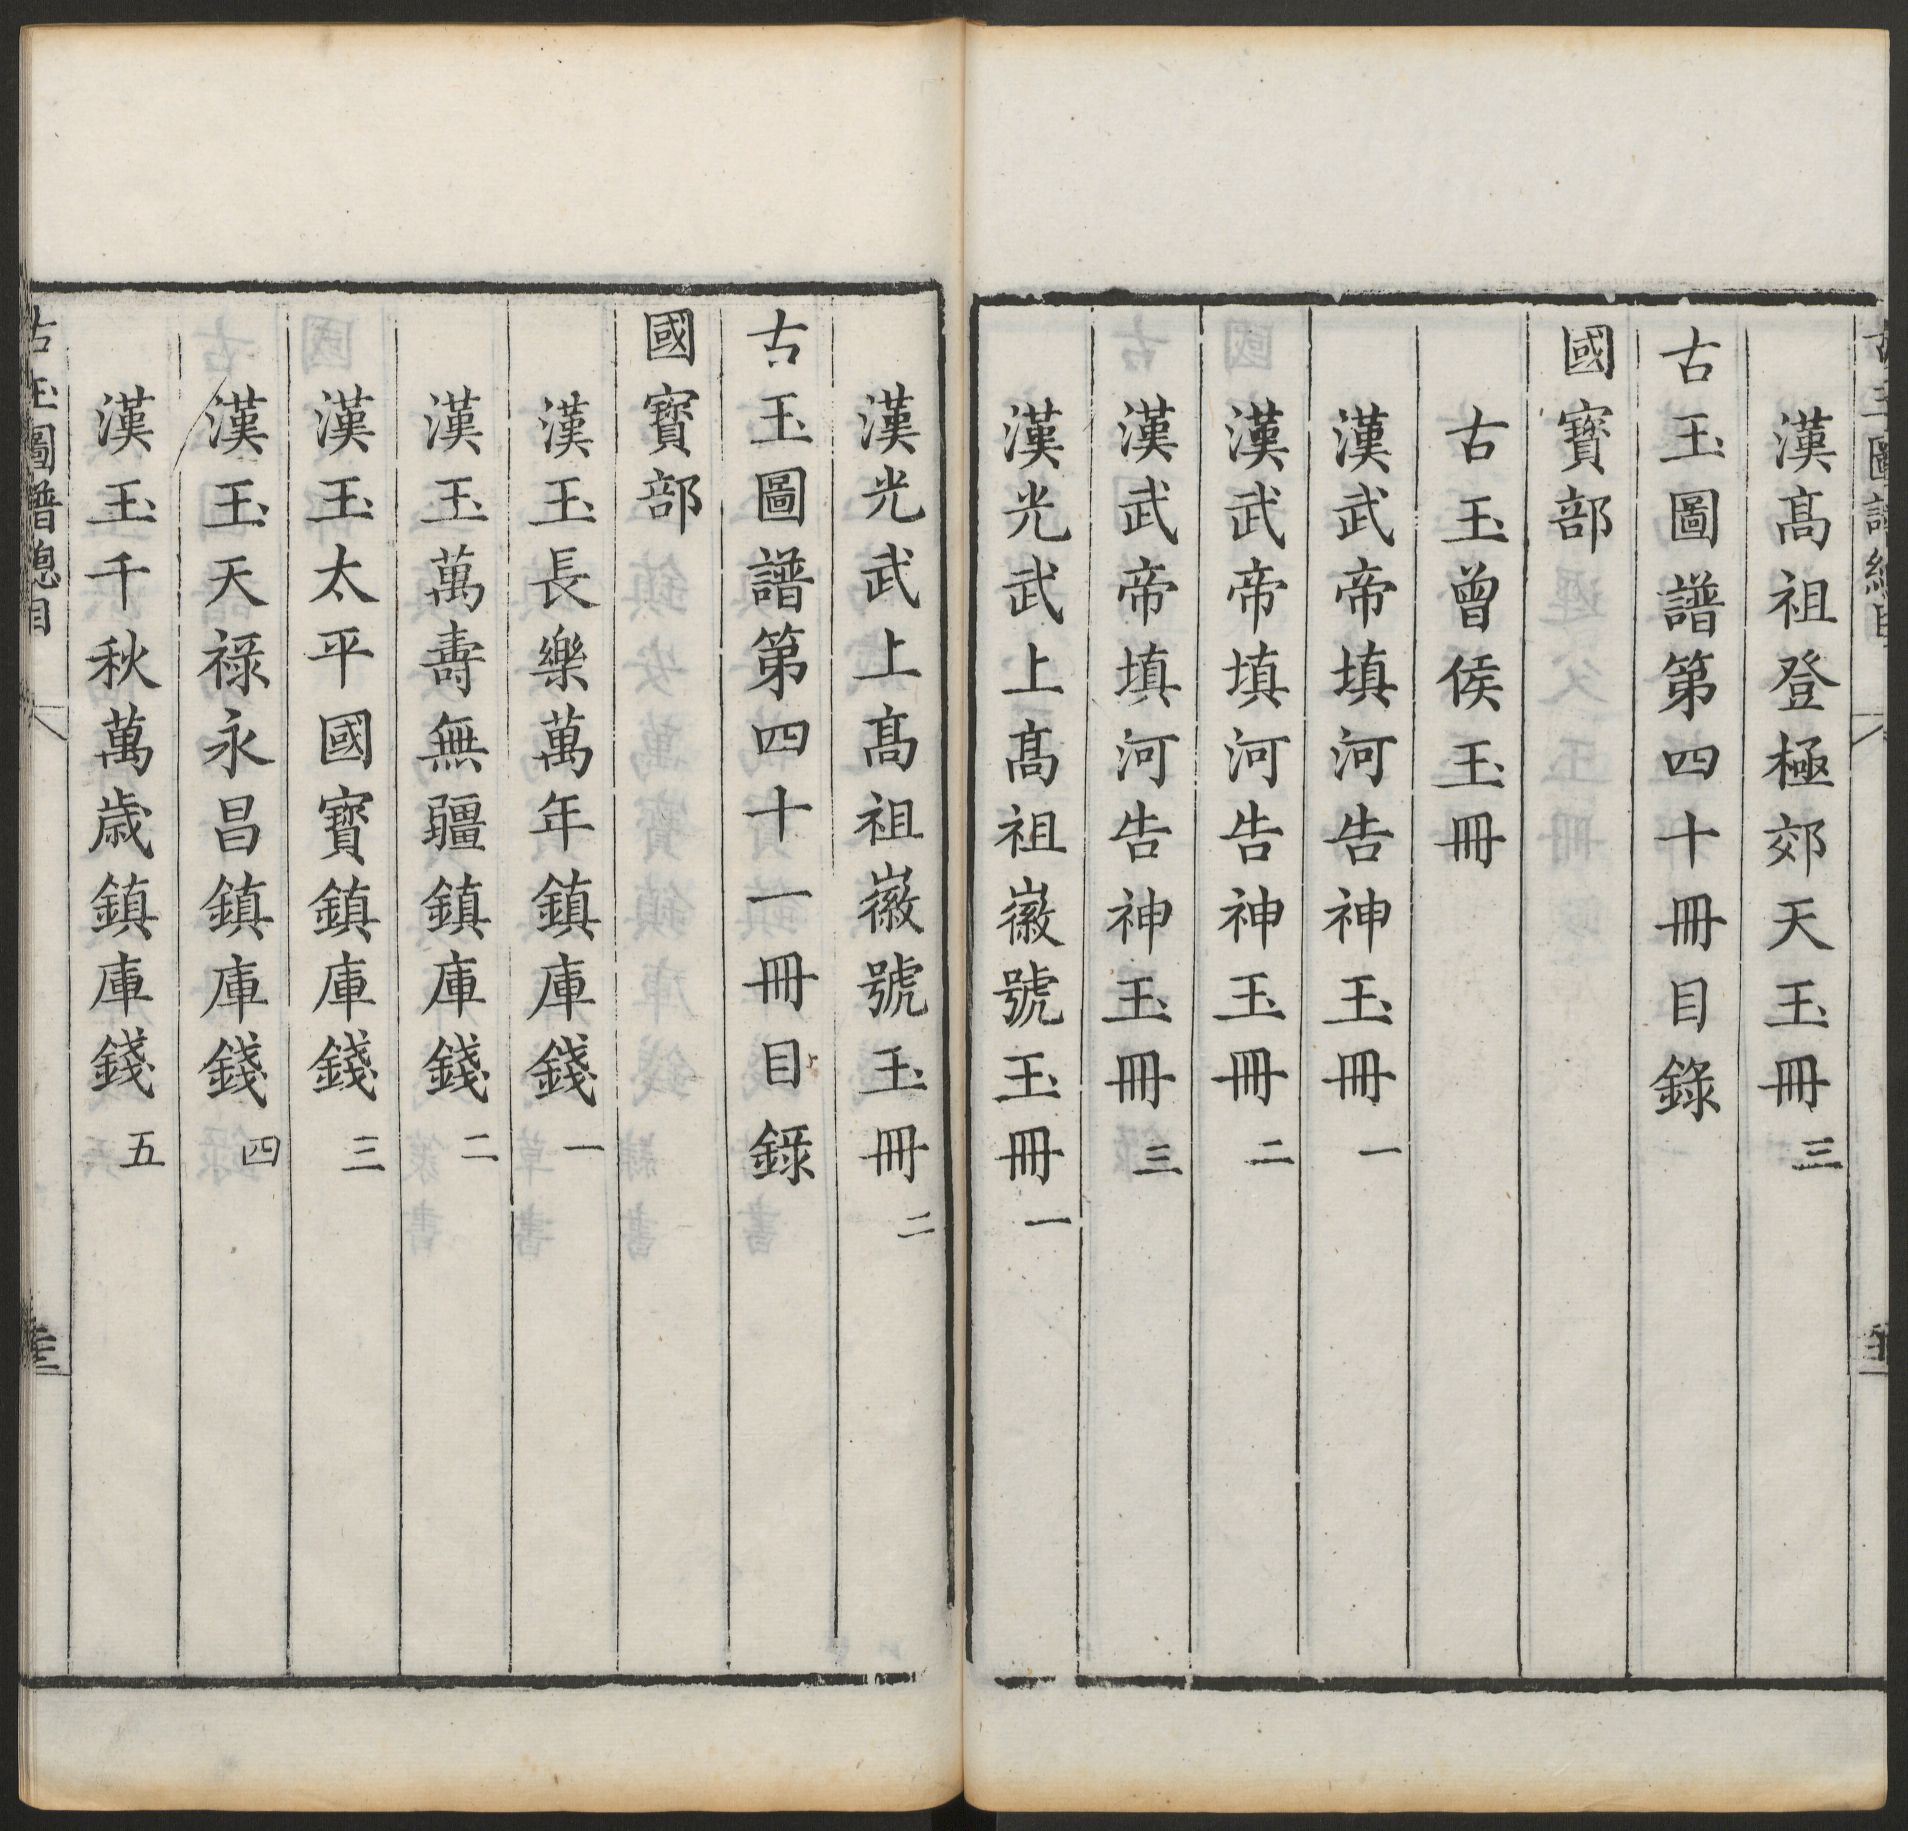 漢髙祖登極郊天玉冊三
古玉圖譜第四十冊目錄
國寳部
古玉曾侯玉冊
漢武帝填河告神玉冊一
漢武帝填河告神玉冊二
漢武帝填河告神玉冊三
漢光武上髙祖徽號玉冊一
漢光武上髙祖徽號玉冊二
古玉圖譜第四十一冊目錄
國寳部
漢玉長樂萬年鎮庫錢一
漢玉萬壽無疆鎮庫錢二
漢玉太平國寳鎮庫錢三
漢玉天祿永昌鎮庫錢四
漢玉千秋萬歲鎮庫錢五
古玉圖譜總目